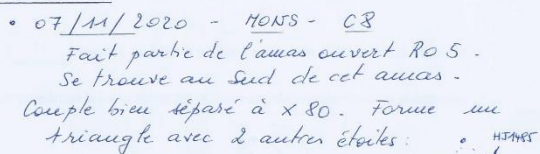 • 07/11/2020 - MONS - C8
Fait partie de l'amas ouvert Ro 5.
Se trouve au Sud de cet amas.
Couple bien séparé à x 80. Forme un
triangle avec 2 autres étoiles :
HJ1485